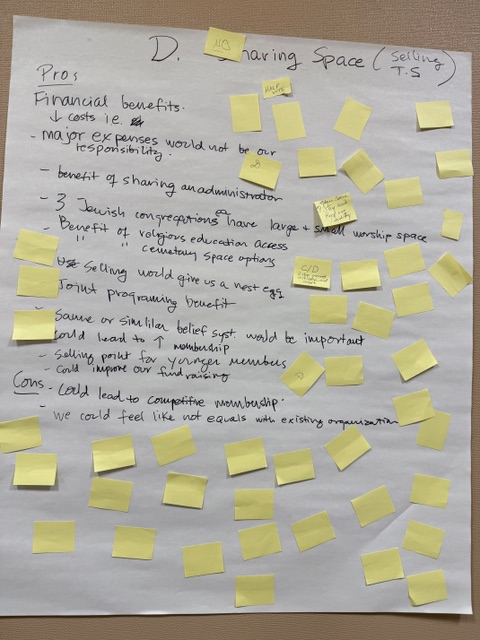 D. Sharing Space (Selling
T.S)
NO
Pros
HALF
Financial benefits.
↓ costs i.e.
- major expenses would not be our
responsibility.
D
- benefit of sharing an administrator
- 3 Jewish congregations have large + small worship space
- Benefit of religious education access
" " cemetary space options
C/D
Selling would give us a nest egg
Joint programing benefit
- Same or similar belief syst. would be important
- Could lead to ↑ membership
- Selling point for younger members
- Could improve our fund raising
Cons - Could lead to competitive membership.
- we could feel like not equals with existing organization